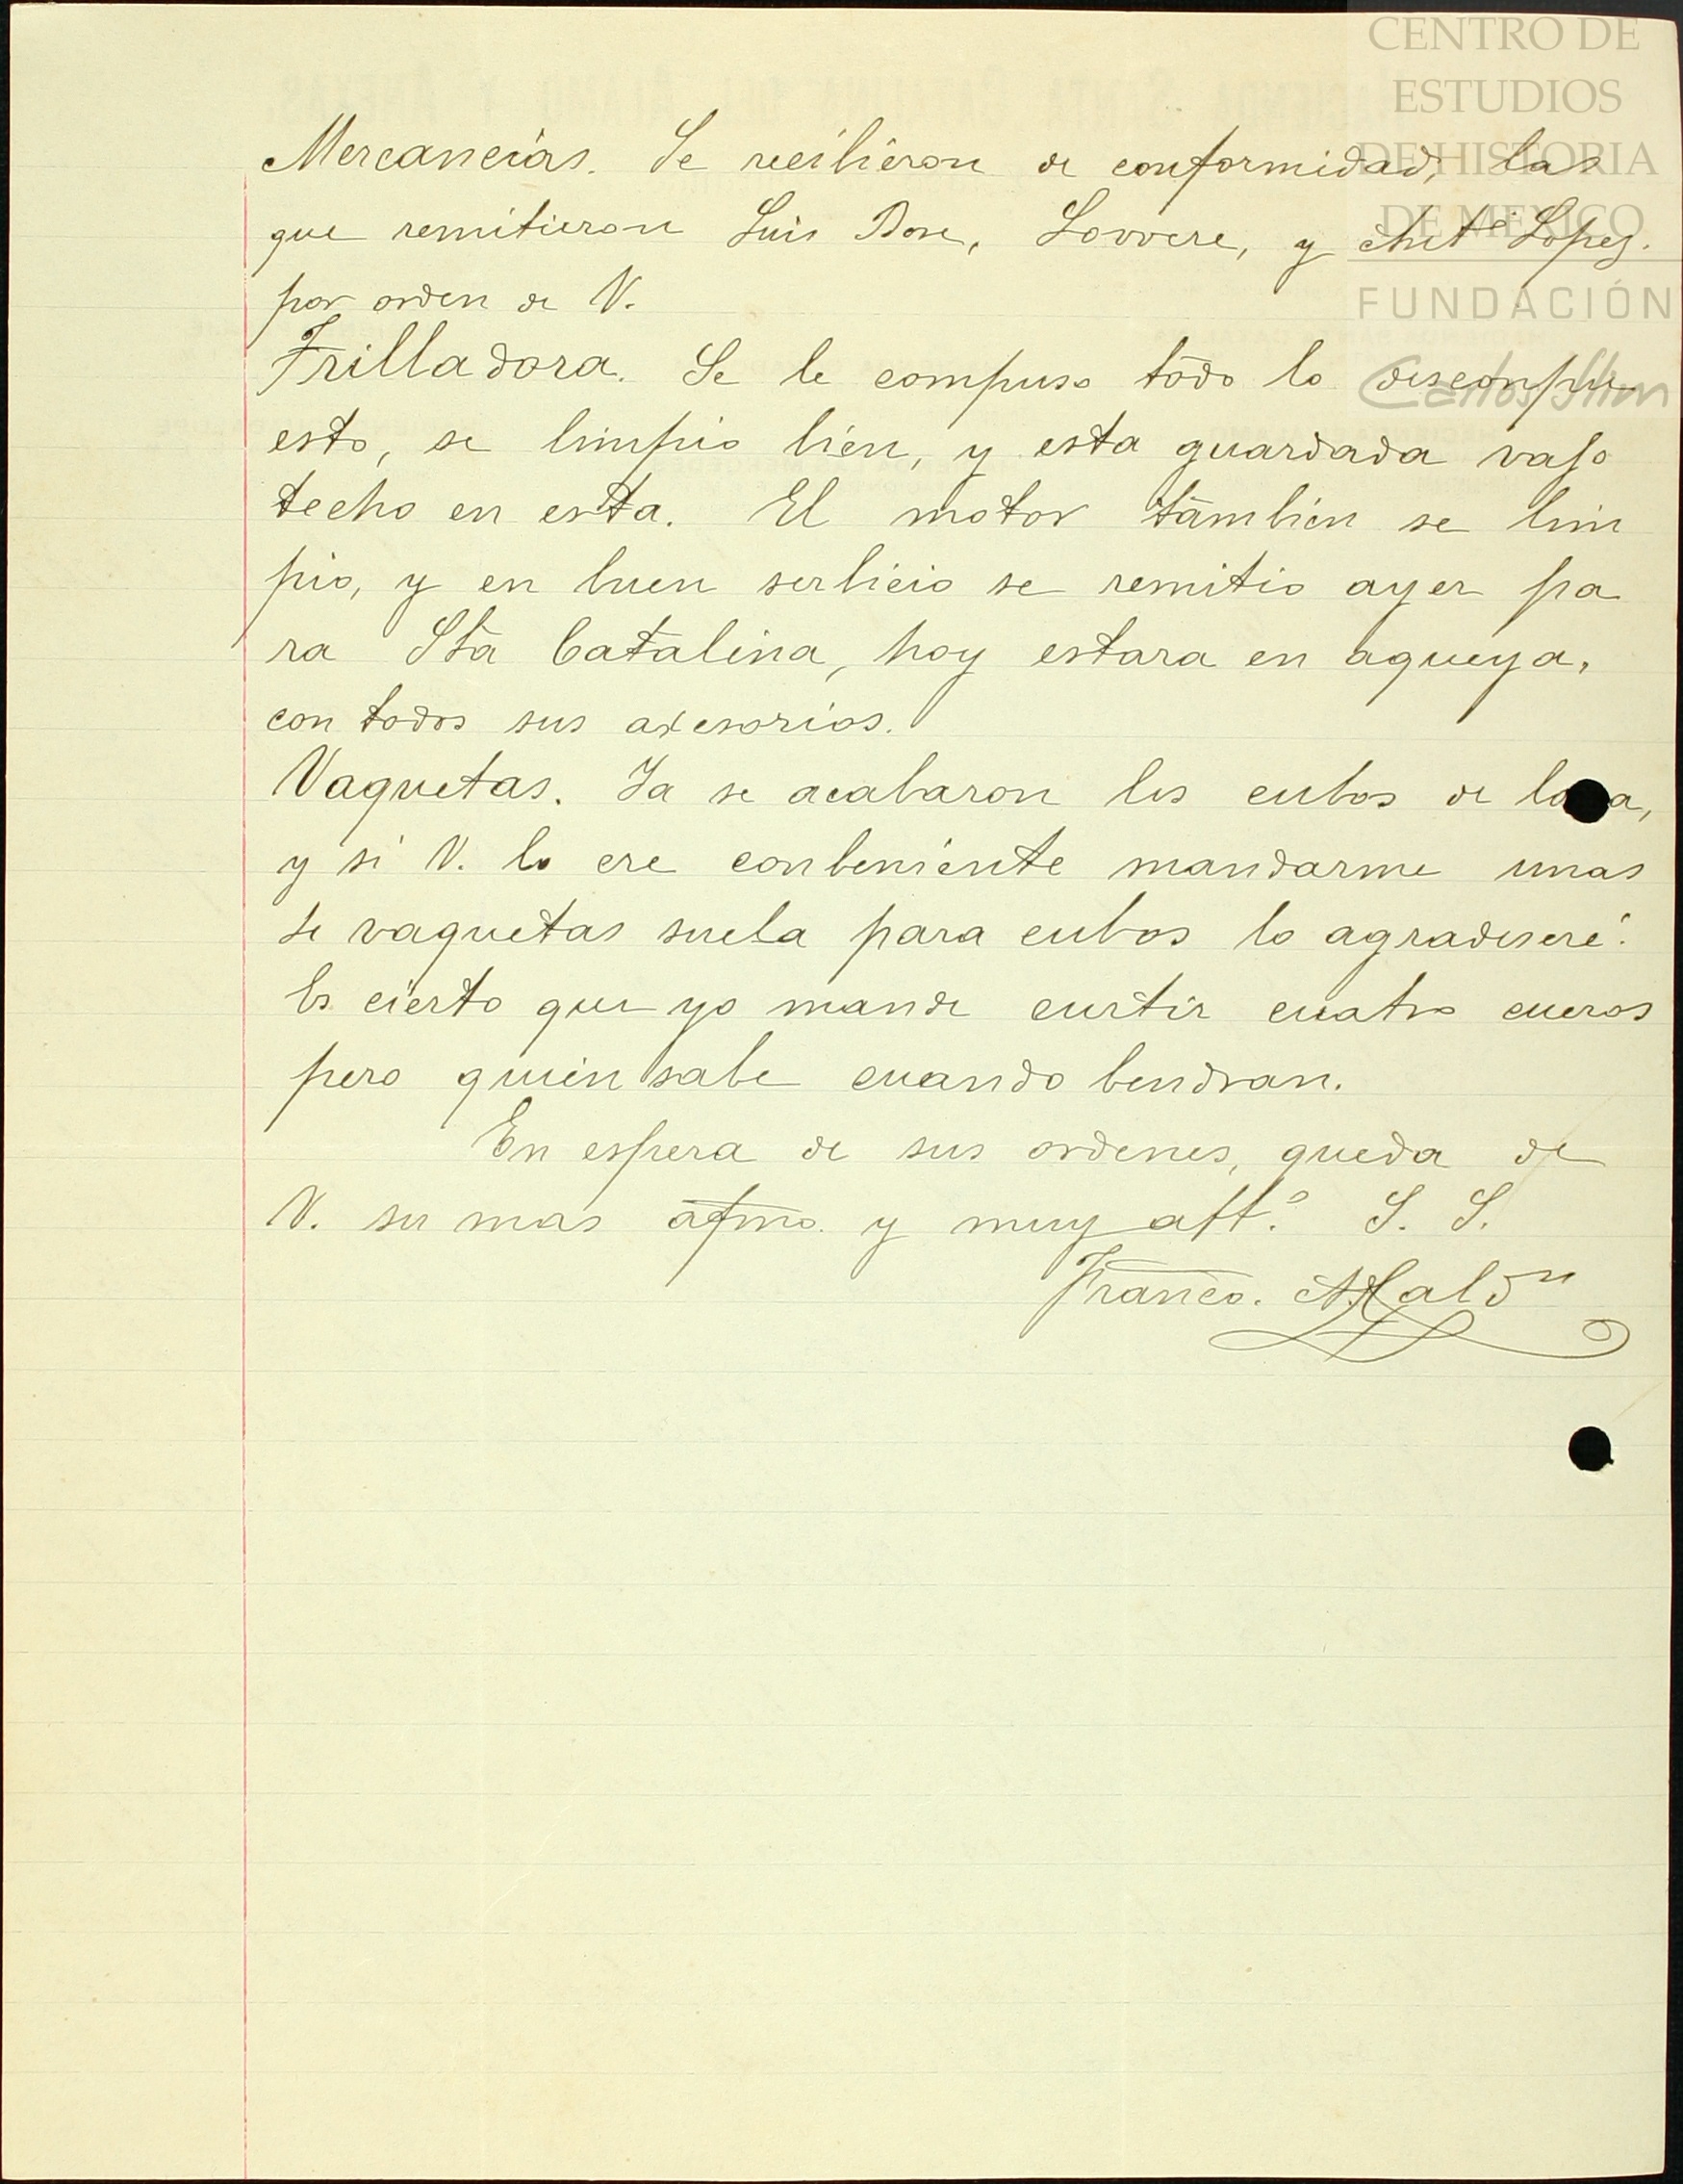 CENTRO DE
ESTUDIOS
DE HISTORIA
DE MEXICO
FUNDACIÓN
Carlos Slim
Mercancias. Se recibieron de conformidad, las
que remitieron Luis Bose, Louvre, y Ant.º Lopez.
por orden de V.
Trilladora. Se le compuso todo lo descompu
esto, se limpio bien, y esta guardada vajo
techo en esta. El motor tambien se lim
pio, y en buen serbicio se remitio ayer pa
ra Sta Catalina, hoy estara en aqueya,
con todos sus axesorios.
Vaquetas. Ya se acabaron los cubos de
y si V. lo cre conbeniente mandarme unas
de vaquetas suela para cubos lo agradeseré.
Es cierto que yo mande curtir cuatro cueros
pero quien sabe cuando bendran.
En espera de sus ordenes, queda de
V. su mas afmo. y muy att.º S. S.
Franco.